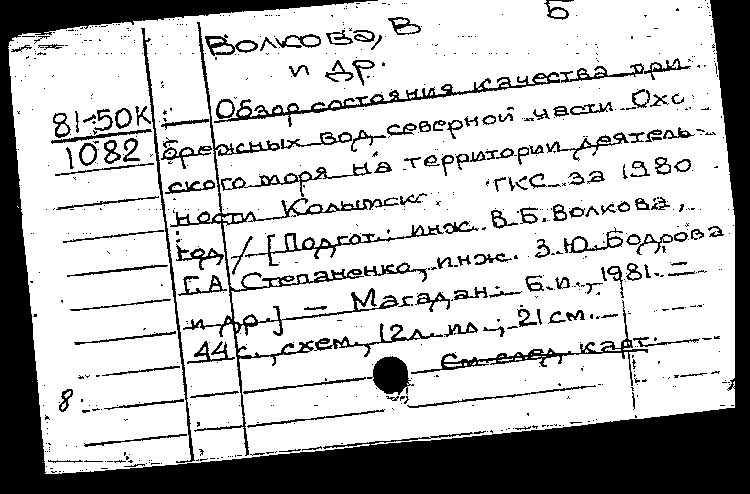 Волкова, В Б
и др.
81-50К
1082
Обзор состояния качества при
брежных вод северной части Охо
ского моря на территории деятель-
ности Колымск. ГКС за 1980
год / [Подгот.: инж. В.Б. Волкова,
Г.А. Степаненко, инж. З.Ю. Бодрова
и др.] — Магадан: Б.и., 1981. —
44 с., схем., 12 л. ил.; 21 см.
См след. карт.
8.